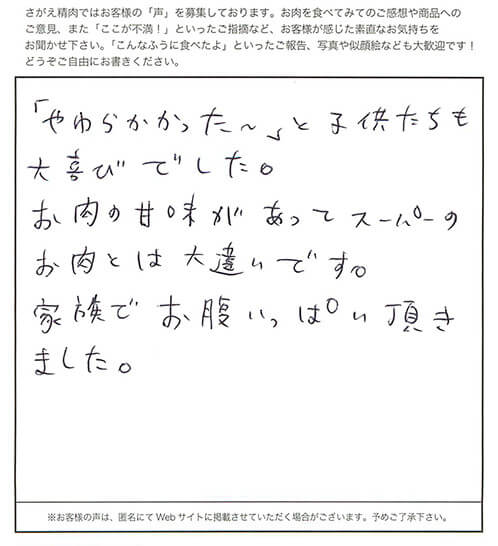 さがえ精肉ではお客様の「声」を募集しております。お肉を食べてみてのご感想や商品への
ご意見、また「ここが不満！」といったご指摘など、お客様が感じた素直なお気持ちを
お聞かせ下さい。「こんなふうに食べたよ」といったご報告、写真や似顔絵なども大歓迎です！
どうぞご自由にお書きください。
「やわらかかった〜」と子供たちも
大喜びでした。
お肉の甘味があってスーパーの
お肉とは大違いです。
家族でお腹いっぱい頂き
ました。
※お客様の声は、匿名にてWebサイトに掲載させていただく場合がございます。予めご了承下さい。